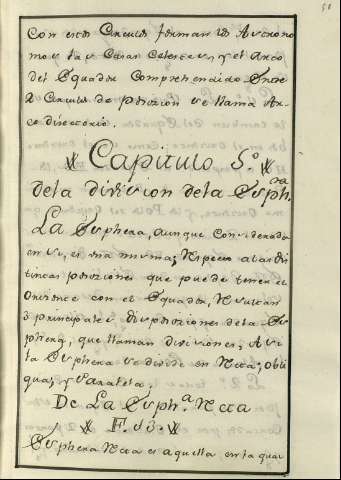 51
Con estos Circulos forman los Astrono
mos las Casas Celestes, y el Arco
del Equador Comprehendido Entre
2 Circulos de posicion se llama Ar
co directorio.
Capitulo 5.º
de la division de la Esph.ra
La Esphera, aunque considerada
en su, es una misma; Respecto a las dis
tintas posiciones que puede tener el
Orisonte con el Equador, Resultan
3 principales disposiciones de la Es
phera, que llaman divisiones; Assi
la Esphera se divide en Recta, obli
qua, y Paralela.
De La Esph.ª Recta
F. 13.
Esphera Recta es aquella en la qual